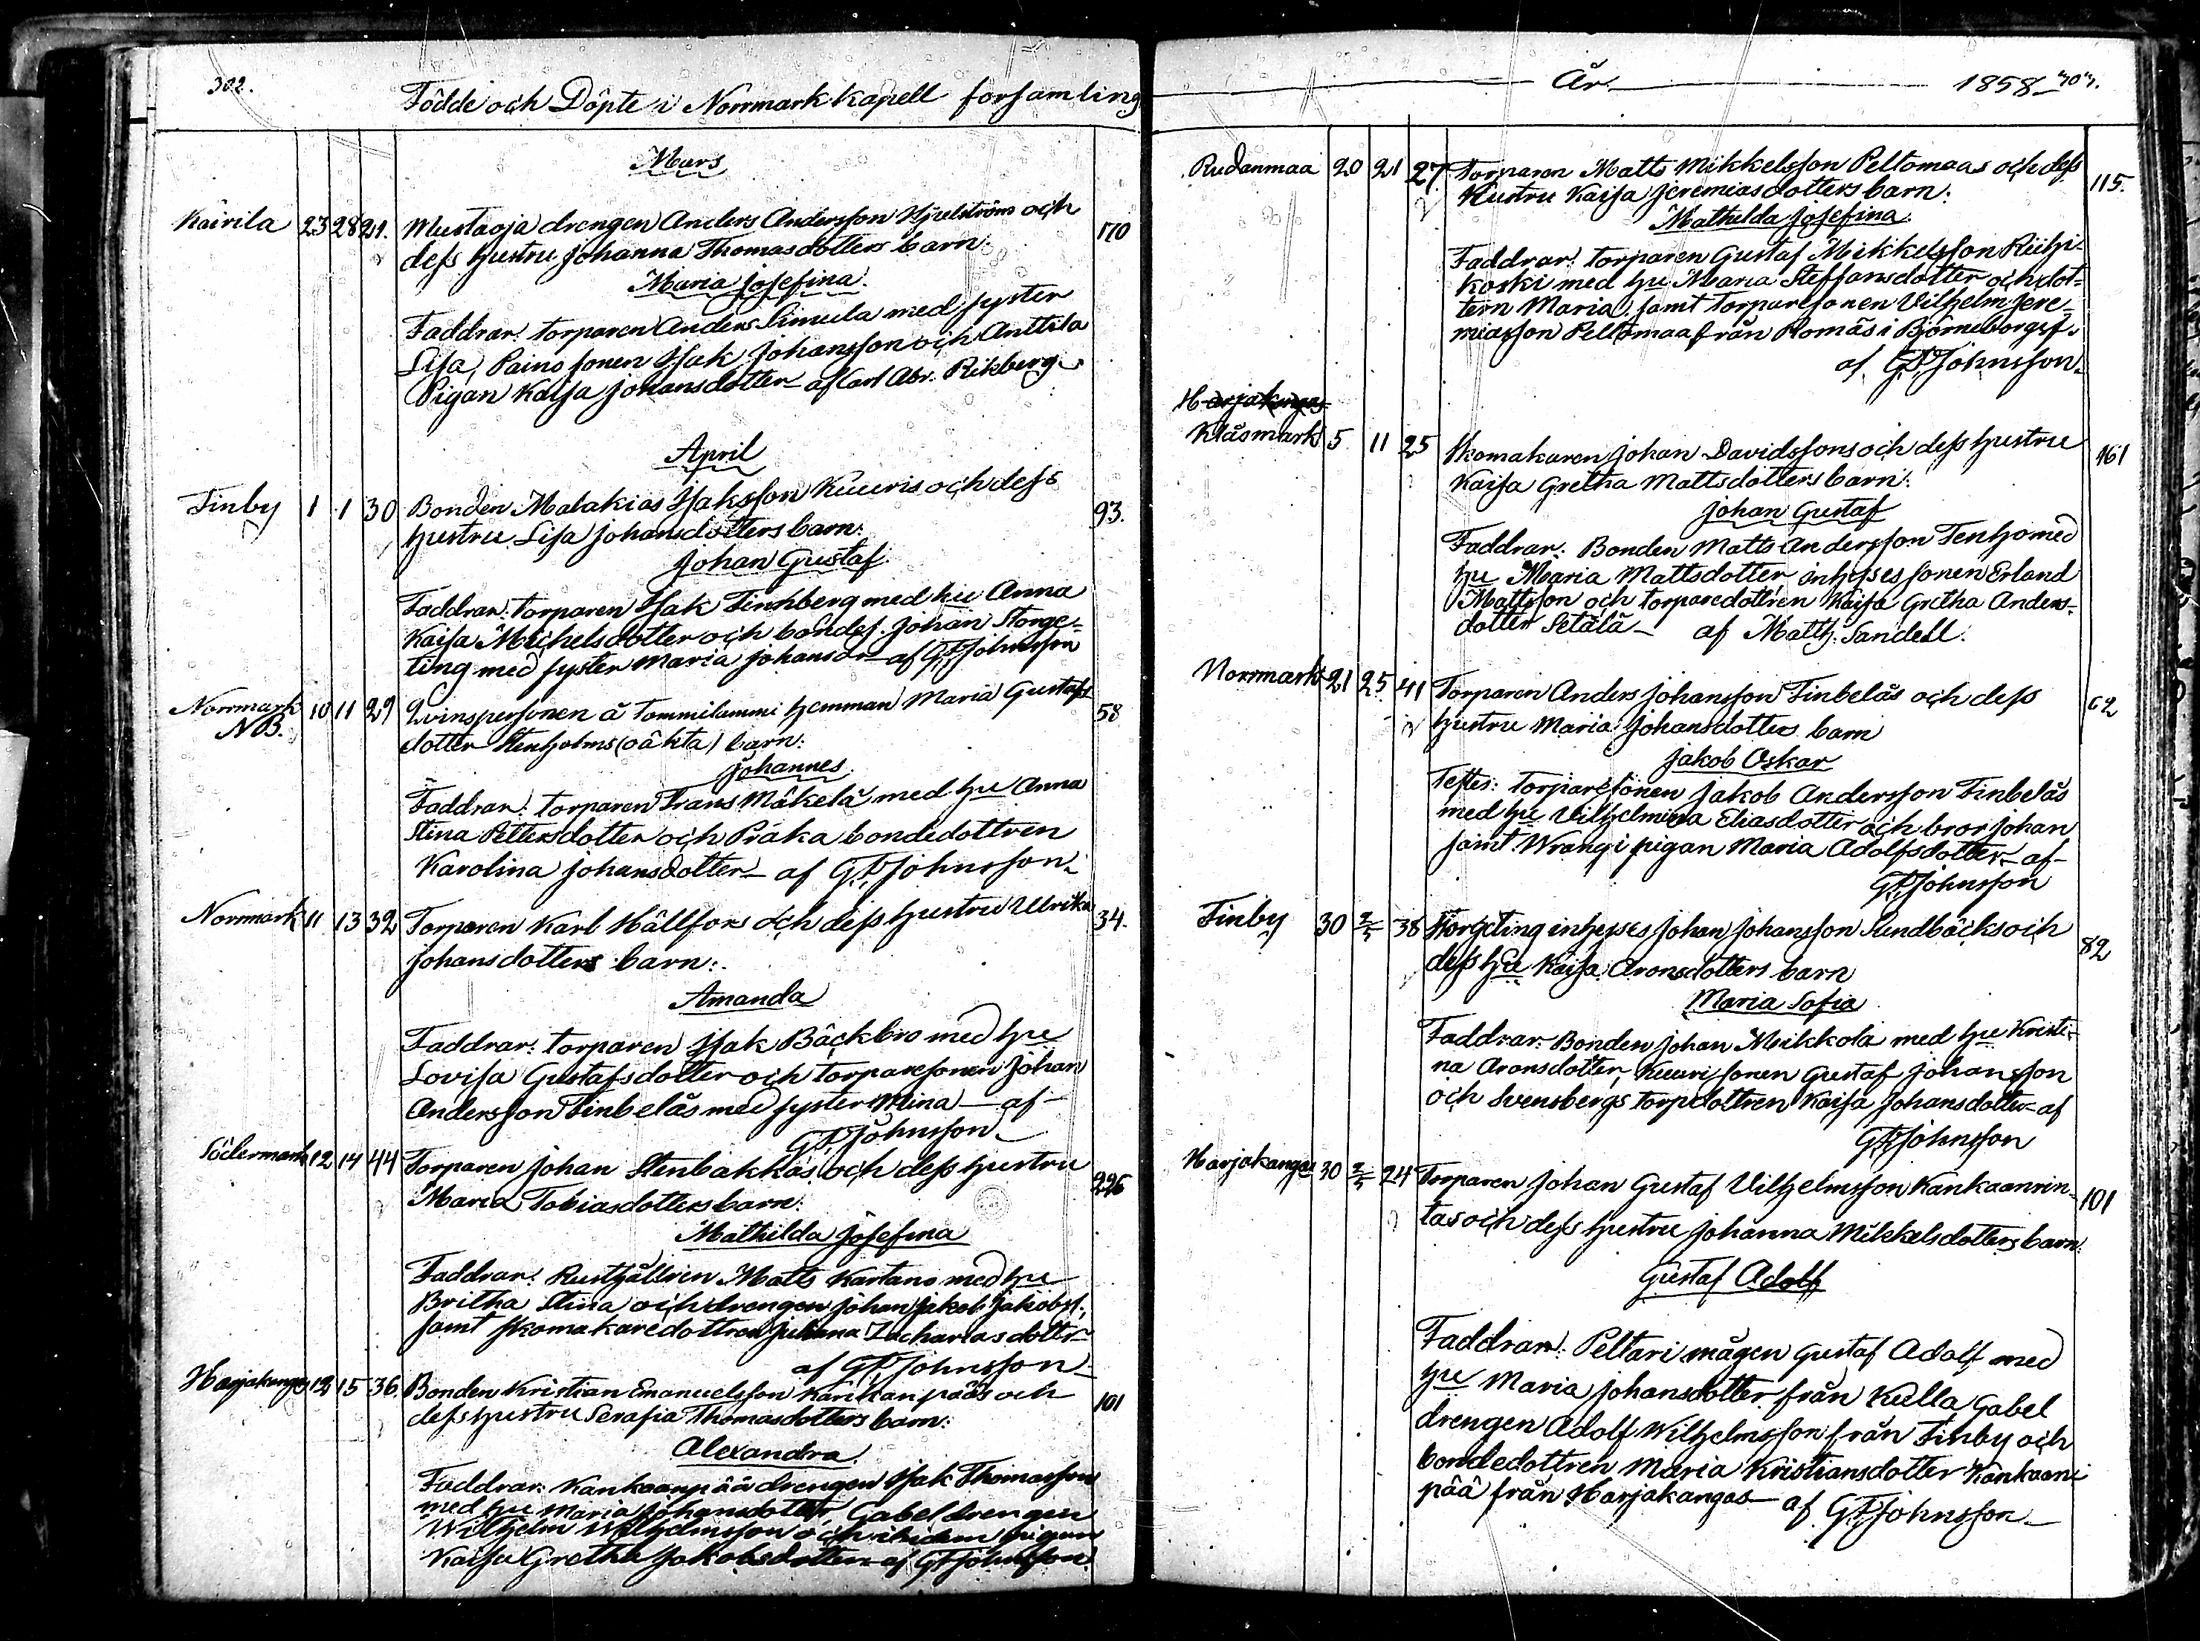 302.
Födde och Döpte i Norrmark kapell församling
Mars
Kairila 23 28 21. Mustaoja drengen Anders Andersson Hjelström och 170
dess hustru Johanna Thomasdotters barn:
Maria Josefina.
Faddrar: torparen Anders Simula med syster
Lisa, Paino sonen Isak Johansson och Anttila
Pigan Kaisa Johansdotter – af Carl Abr. Rikberg
April
Finby 1 1 30 Bonden Malakias Isaksson Kuuris och dess 93.
hustru Lisa Johansdotters barn:
Johan Gustaf
Faddrar: torparen Isak Finnberg med hu Anna
Kaisa Michelsdotter och bondes. Johan Storge-
ting med syster Maria Johansdr – af GPJohnsson
Norrmark 10 11 29 Qvinspersonen å Tommilammi hemman Maria Gustafs 58
NB. dotter Stenholms (oäkta) barn:
Johannes
Faddrar: torparen Frans Mäkelä med hu Anna
Stina Pettersdotter och Präka bondedottren
Karolina Johansdotter – af GPJohnsson
Norrmark 11 13 32 Torparen Karl Hällfors och dess hustru Ulrika 34.
Johansdotters barn:
Amanda
Faddrar: torparen Isak Bäckbro med hu
Lovisa Gustafsdotter och torparesonen Johan
Andersson Finbelås med syster Mina – af
GPJohnsson
Södermark 12 14 44 Torparen Johan Stenbakkas och dess hustru 226
Maria Tobiasdotters barn:
Mathilda Josefina
Faddrar: Rusthållren Matts Kartano med hu
Britha Stina och drengen Johan Jakob Jakobss.,
samt skomakaredottren Juliana Zachariasdotter
af GPJohnsson
Harjakangas 12 15 36. Bonden Kristian Emanuelsson Kankaanpääs och 101
dess hustru Serafia Thomasdotters barn:
Alexandra
Faddrar: Kankaanpää drengen Isak Thomasson
med hu Maria Johansdotter, Gabel drengen
Wilhelm Wilhelmsson och ibidem pigan
Kaisa Gretha Jakobsdotter – af GPJohnsson
År 1858 303.
Rudanmaa 20 21 27 Torparen Matts Mikkelsson Peltomaas och dess 115.
Hustru Kaisa Jeremiasdotters barn:
Mathilda Josefina.
Faddrar: torparen Gustaf Mikkelsson Riihi-
koski med hu Maria Steffansdotter och dot-
tern Maria, samt torparesonen Vilhelm Jere-
miasson Peltomaa från Romäs i Björneborgs f.
af GPJohnsson
Harjakangas
Klåsmark 5 11 25 Skomakaren Johan Davidssons och dess hustru 161
Kaisa Gretha Mattsdotters barn:
Johan Gustaf
Faddrar: Bonden Matts Andersson Tenho med
hu Maria Mattsdotter inhyses sonen Erland
Mattsson och torparedottren Kaisa Gretha Anders-
dotter Setälä – af Matth: Sandell.
Norrmark 21 25 41 Torparen Anders Johansson Finbelås och dess 62
hustru Maria Johansdotters barn
Jakob Oskar
Testes: torparesonen Jakob Andersson Finbelås
med hu Vilhelmina Eliasdotter och bror Johan
samt Wrangi pigan Maria Adolfsdotter – af
GPJohnsson
Finby 30 2/5 38 Storgeting inhyses Johan Johansson Sundbäcks och 82
dess hu Kaisa Aronsdotters barn
Maria Sofia
Faddrar: Bonden Johan Mikkola med hu Kristi-
na Aronsdotter, Kuuri sonen Gustaf Johansson
och Svensbergs torpdottren Kaisa Johansdotter – af
GPJohnsson
Harjakangas 30 2/5 24 Torparen Johan Gustaf Vilhelmsson Kankaanrin- 101
tas och dess hustru Johanna Mikkelsdotters barn:
Gustaf Adolf
Faddrar: Peltari mågen Gustaf Adolf med
hu Maria Johansdotter från Kulla, Gabel
drengen Adolf Wilhelmsson från Finby och
bondedottren Maria Kristiansdotter Kankaan-
pää från Harjakangas – af GPJohnsson